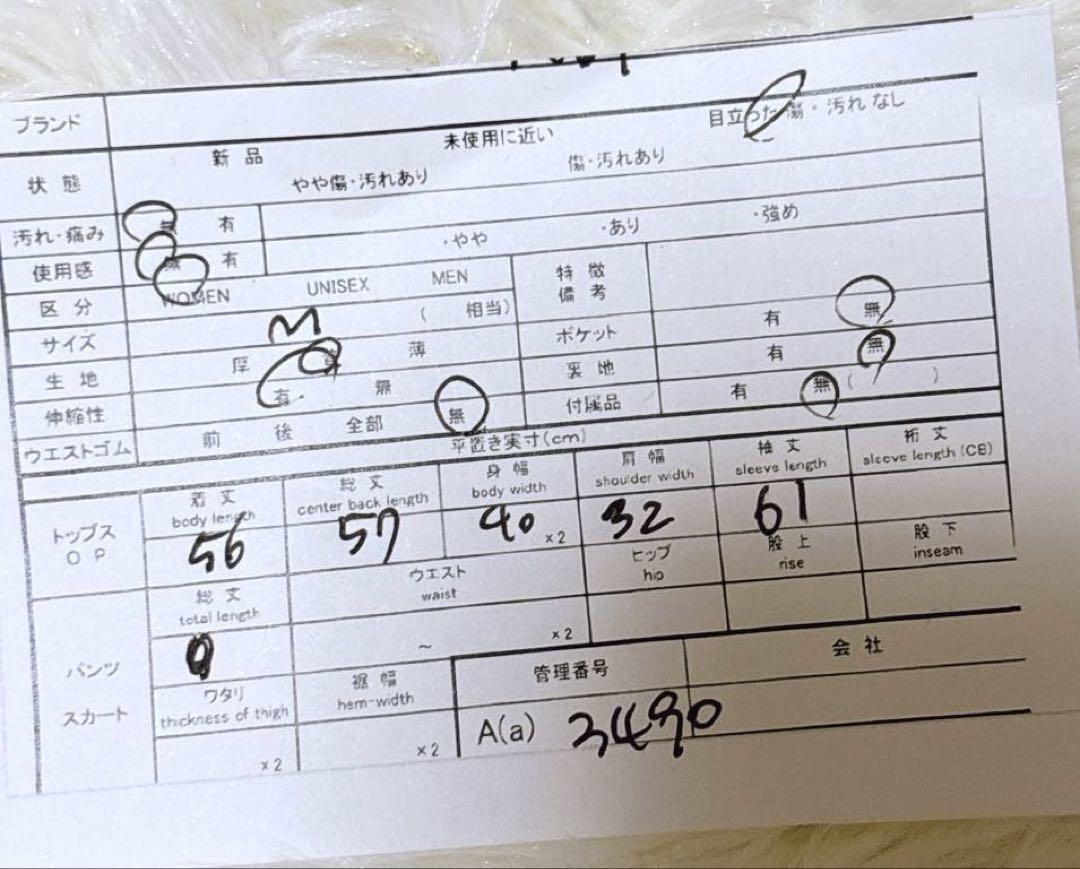 ブランド
状態 新品 未使用に近い 目立った傷・汚れなし
やや傷・汚れあり 傷・汚れあり
汚れ・痛み 無 有 ・やや ・あり ・強め
使用感 無 有
区分 WOMEN UNISEX MEN 特徴 備考
サイズ M ( 相当) ポケット 有 無
生地 厚 薄 裏地 有 無
伸縮性 有 無 付属品 有 無 ( )
ウエストゴム 前 後 全部 無
平置き実寸(cm)
トップス OP
着丈 総丈 身幅 肩幅 袖丈 裄丈
body length center back length body width shoulder width sleeve length sleeve length (CB)
56 57 40 ×2 32 61
パンツ スカート
総丈 ウエスト ヒップ 股上 股下
total length waist hip rise inseam
~ ×2
ワタリ 裾幅 管理番号 会社
thickness of thigh hem-width
×2 ×2 A(a) 3490